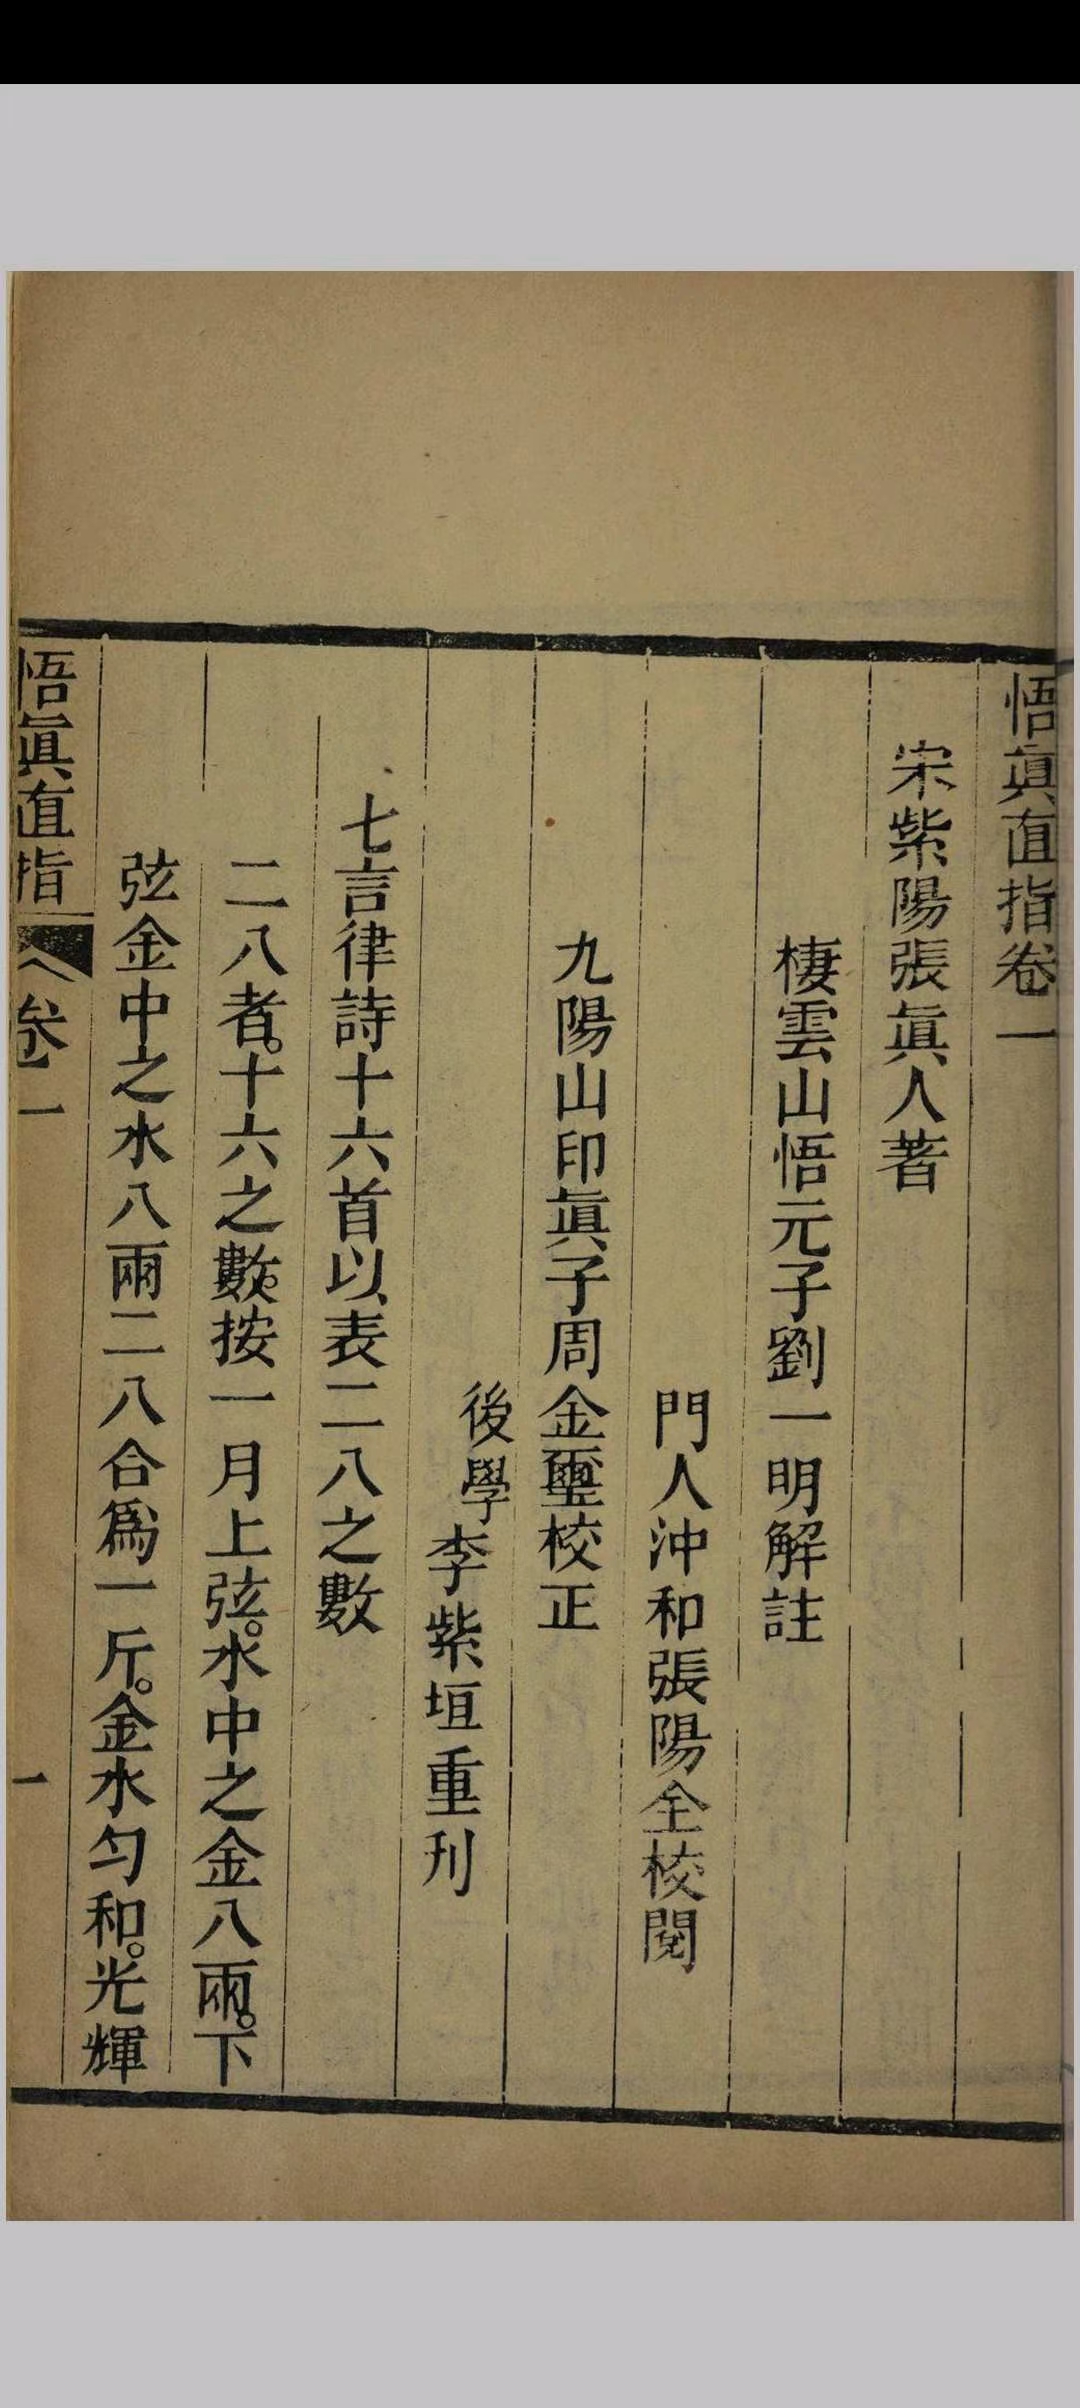 悟眞直指卷一
宋紫陽張眞人著
棲雲山悟元子劉一明解註
門人沖和張陽全校閱
九陽山印眞子周金璽校正
後學李紫垣重刊
七言律詩十六首以表二八之數
二八者。十六之數。按一月上弦。水中之金八兩。下
弦金中之水八兩二八合爲一斤。金水匀和。光輝
悟眞直指 卷一 一